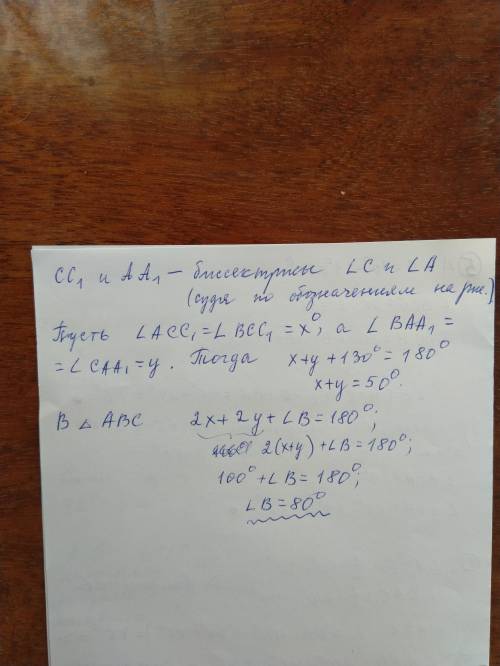 CC₁ и AA₁ — биссектрисы ∠C и ∠A
(судя по обозначениям на рис.)
Пусть ∠ACC₁ = ∠BCC₁ = x°, а ∠BAA₁ =
= ∠CAA₁ = y. Тогда x+y+130° = 180°
x+y = 50°.
В △ABC 2x + 2y + ∠B = 180°;
2(x+y) + ∠B = 180°;
100° + ∠B = 180°;
∠B = 80°